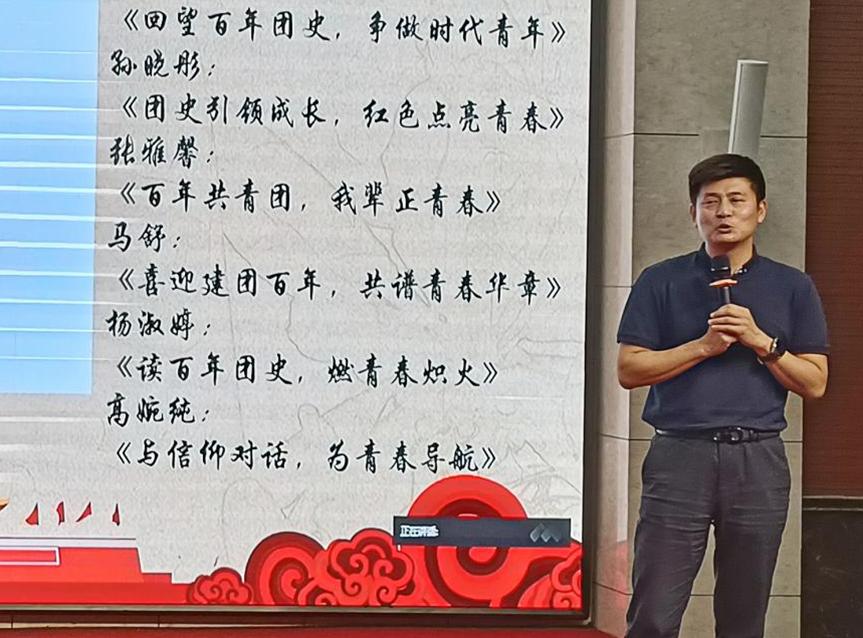 《回望百年团史，争做时代青年》
孙晓彤：
《团史引领成长，红色点亮青春》
张雅馨：
《百年共青团，我辈正青春》
马舒：
《喜迎建团百年，共谱青春华章》
杨淑婷：
《读百年团史，燃青春炽火》
高婉纯：
《与信仰对话，为青春导航》
正在讲话: